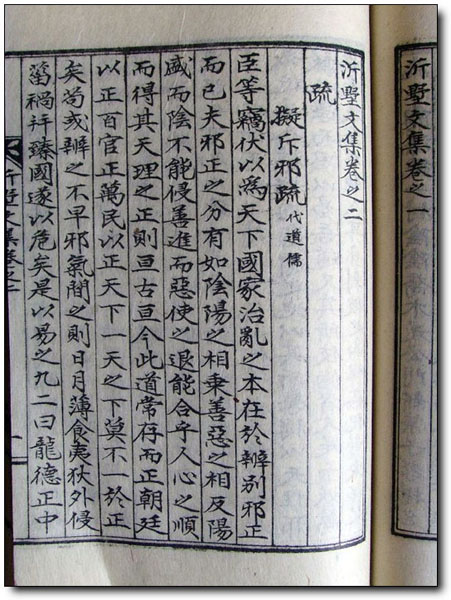 沂墅文集卷之一
沂墅文集卷之二
疏
擬斥邪疏 代道儒
臣等竊伏以為天下國家治亂之本在於辨別邪正
而已夫邪正之分有如陰陽之相乘善惡之相反陽
盛而陰不能侵善進而惡使之退能合乎人心之順
而得其天理之正則亘古亘今此道常存而正朝廷
以正百官正萬民以正天下一天之下莫不一於正
矣苟或辨之不早邪氣間之則日月薄食夷狄外侵
菑禍幷臻國遂以危矣是以易之九二曰龍德正中